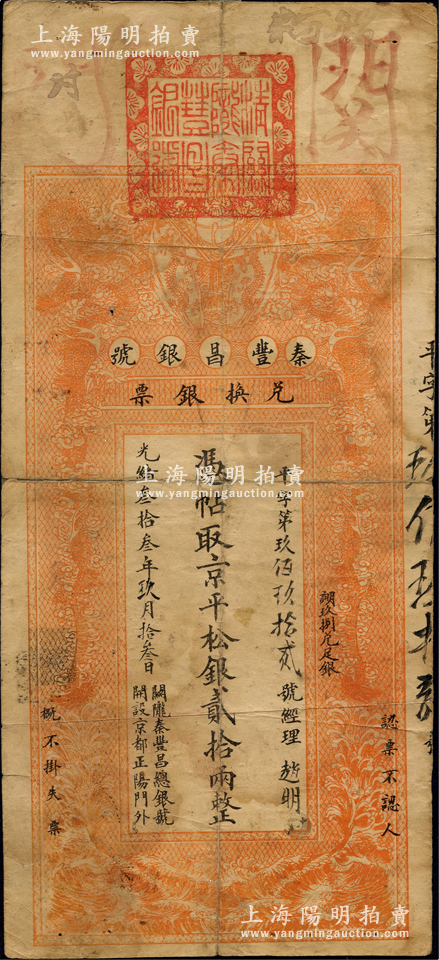 上海陽明拍賣
www.yangmingauction.com
關
對
秦豐昌銀號
兌換銀票
平字第玖佰玖拾貳號經理趙明
憑帖取京平松銀貳拾兩整
光緒叁拾叁年玖月拾叁日
關隴秦豐昌總銀號
開設京都正陽門外
玖捌兌足銀
認票不認人
概不掛失票
平字第玖佰玖拾貳號
上海陽明拍賣
www.yangmingauction.com
上海陽明拍賣
www.yangmingauction.com